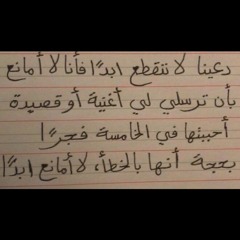 دعينا لا ننقطع ابدًا فأنا لا أمانع
بأن ترسلي لي أغنية أو قصيدة
أحببتها في الخامسة فجرًا
بحجة أنها بالخطأ، لا أمانع ابدًا